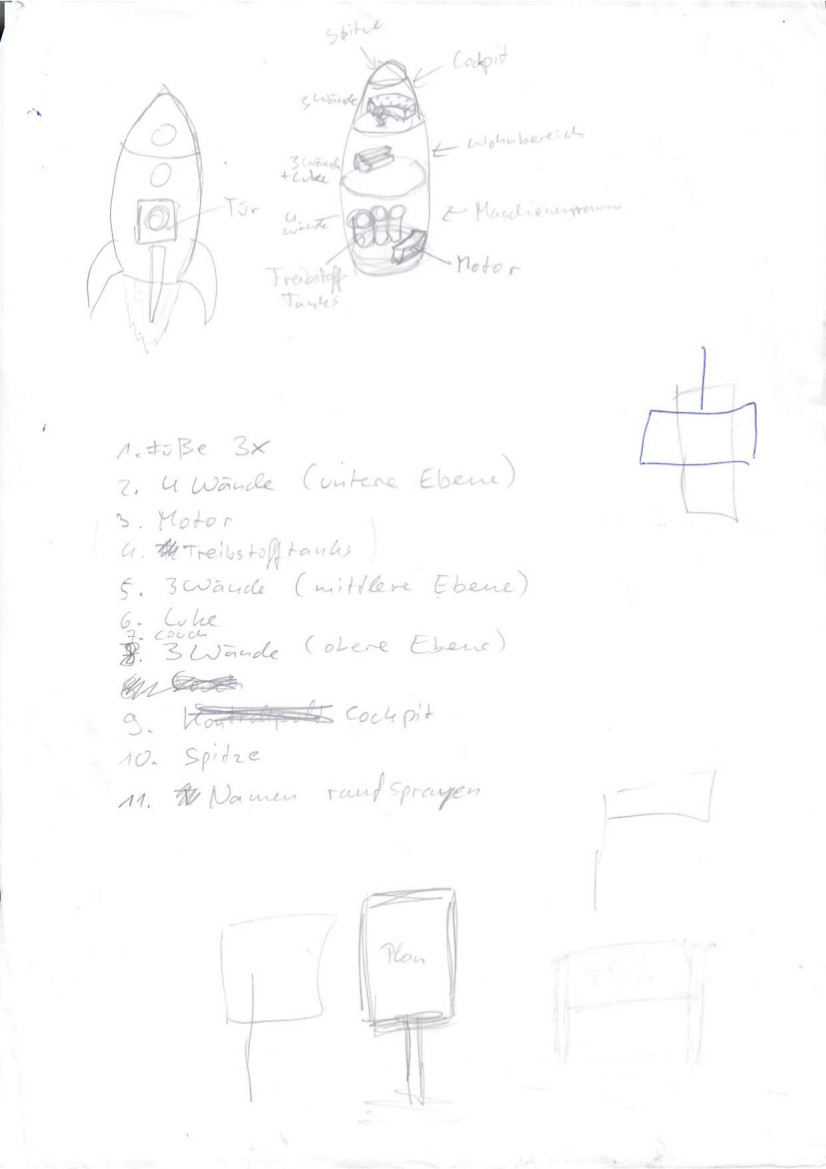 Spitze
Cockpit
3 Wände
Wohnbereich
3 Wände
+ Luke
Tür
4
Wände
Maschienenraum
Treibstoff
Tanks
Motor
1. Füße 3x
2. 4 Wände (untere Ebene)
3. Motor
4. Treibstofftanks
5. 3 Wände (mittlere Ebene)
6. Luke
7. Couch
8. 3 Wände (obere Ebene)
9. Cockpit
10. Spitze
11. Namen raufsprayen
Plan
Plan